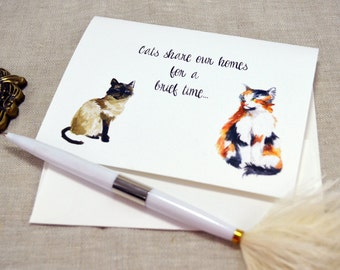 Cats share our homes
for a
brief time...